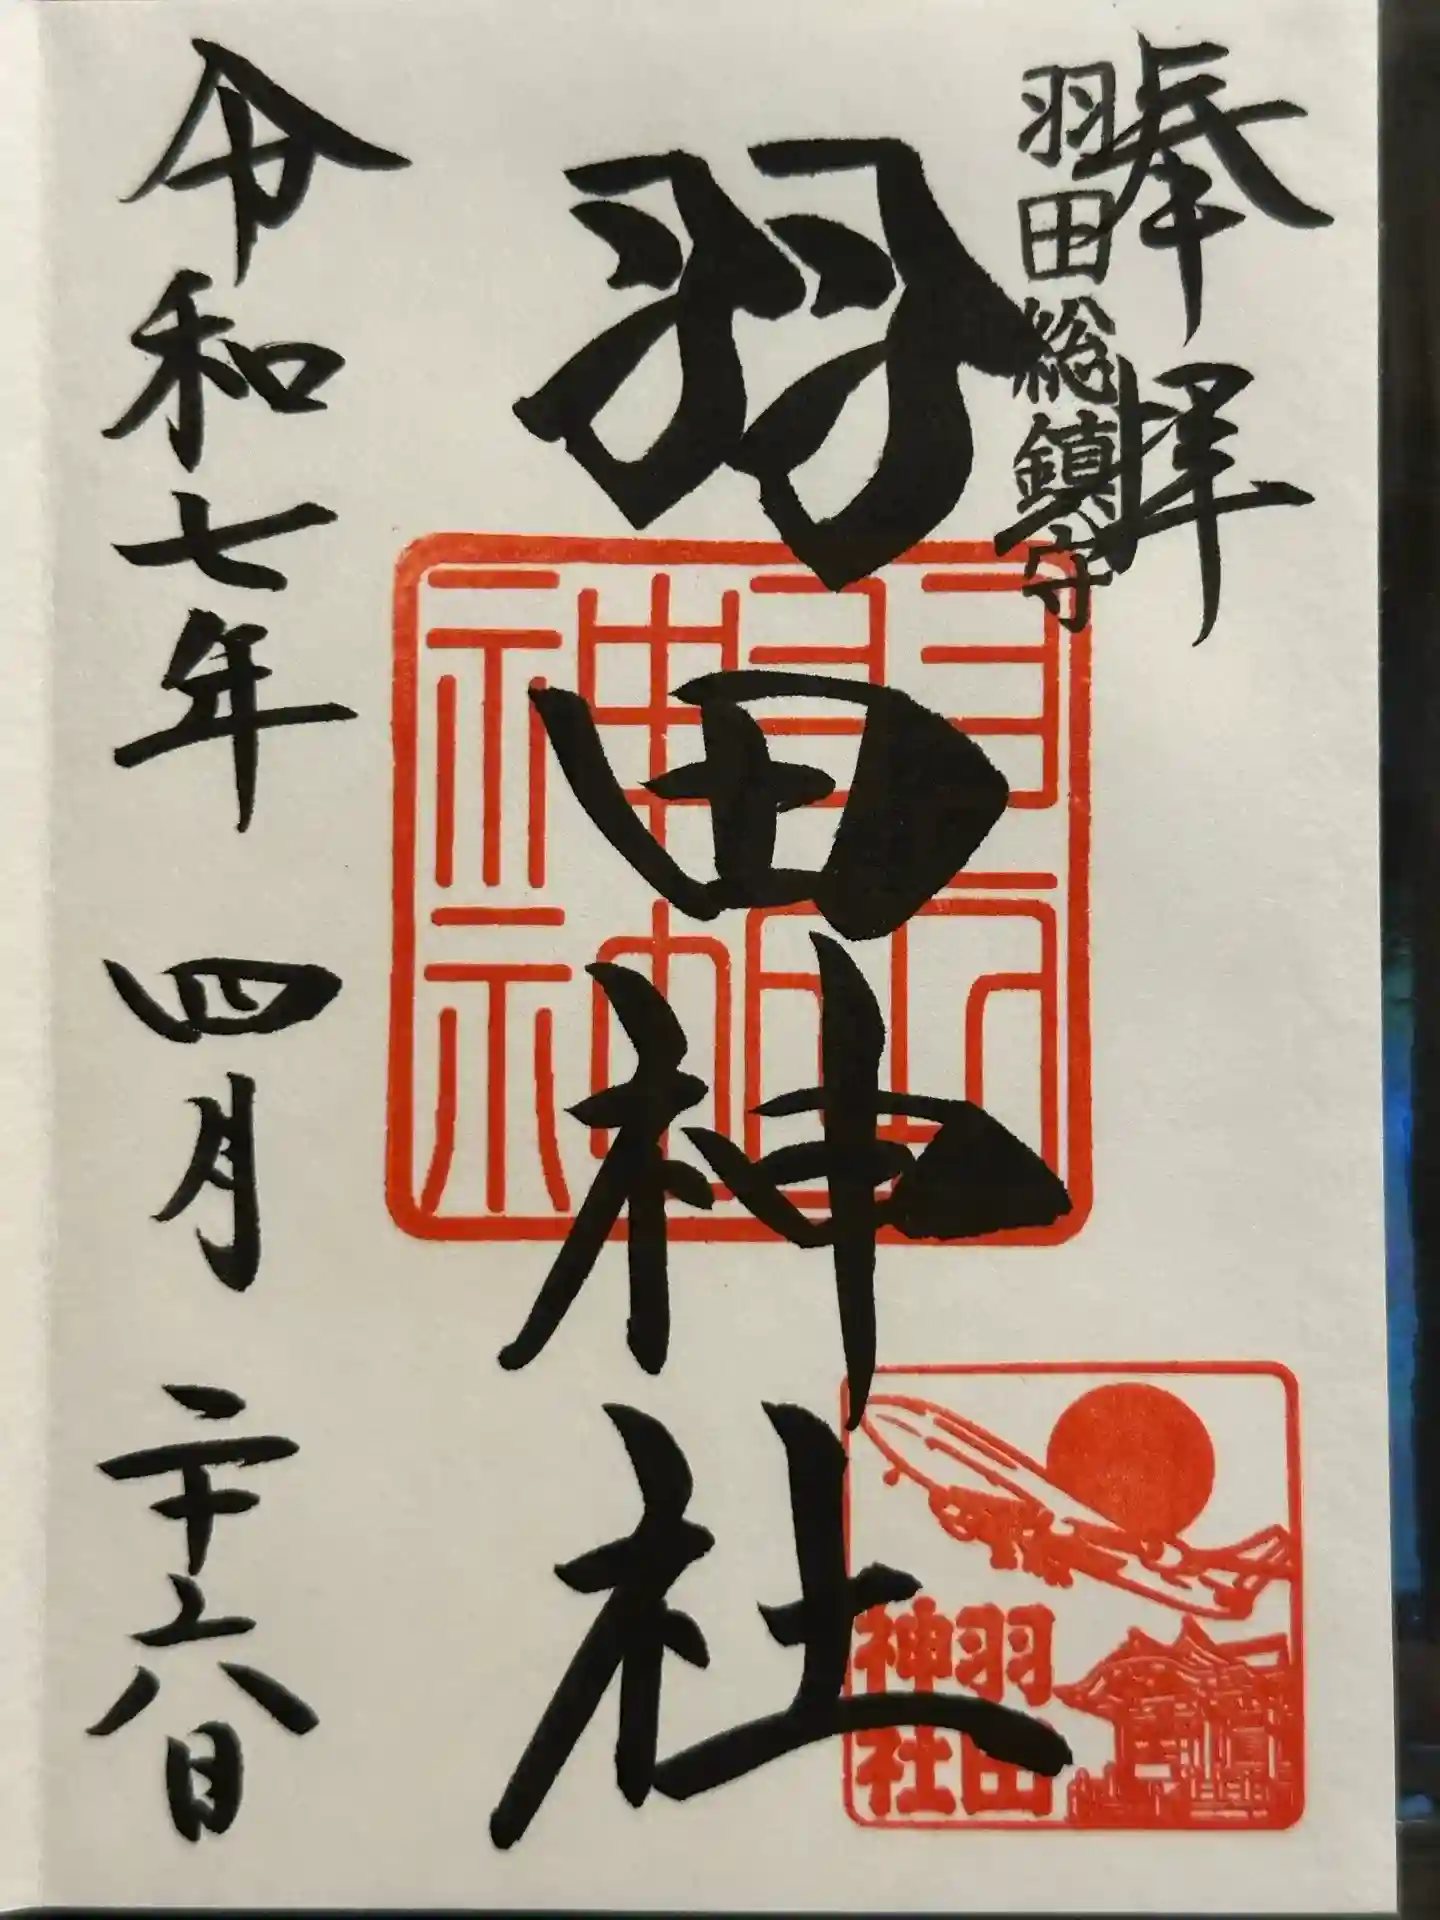 奉拝
羽田総鎮守
羽田神社
令和七年 四月 二十六日
羽田
神社